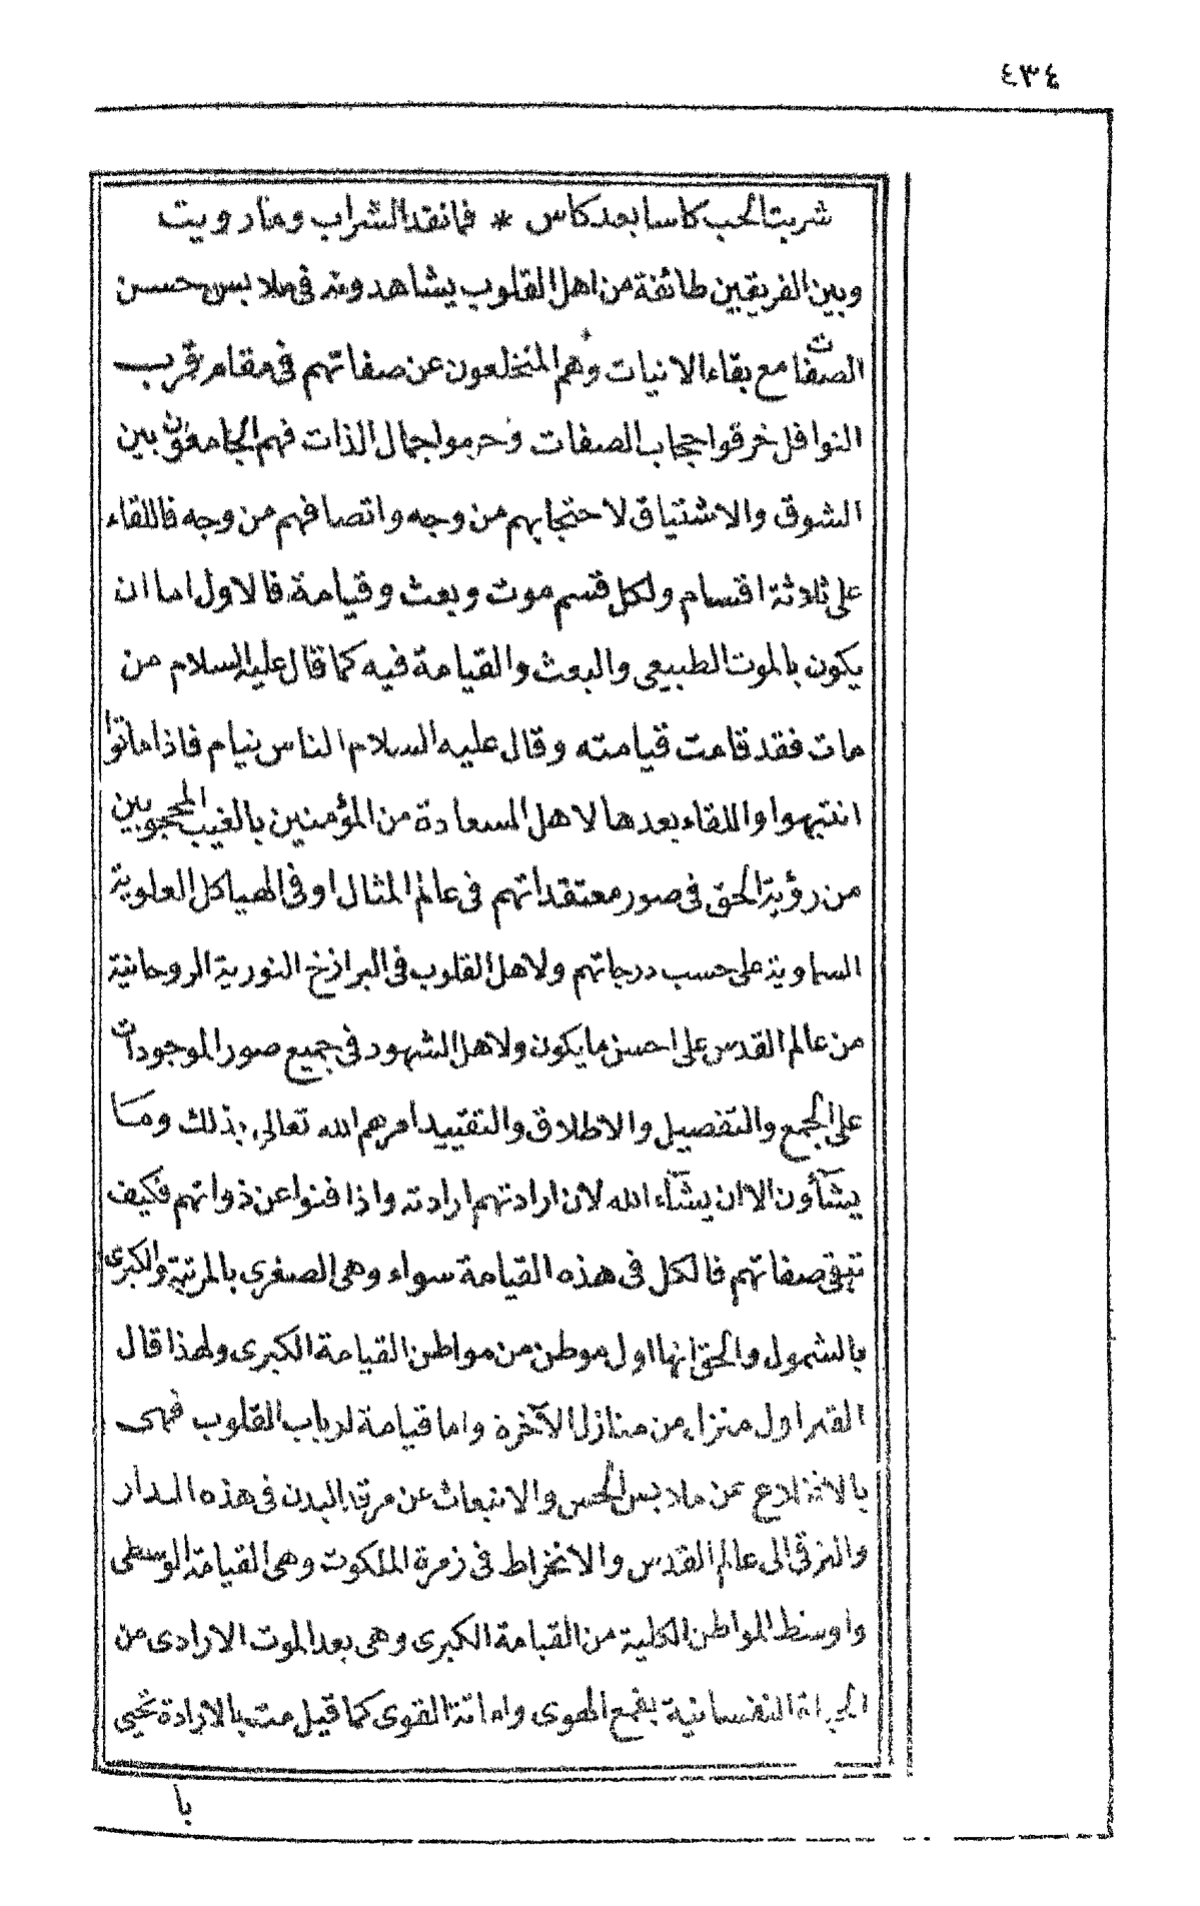 ٤٣٤
شربت الحب كاسا بعد كاس * فما نفد الشراب وما رويت
وبين الفريقين طائفة من اهل القلوب يشاهدونه فى ملابس حسن
الصفات مع بقاء الانيات وهم المنخلعون عن صفاتهم فى مقام قرب
النوافل خرقوا حجاب الصفات وحرموا جمال الذات فهم الجامعون بين
الشوق والاشتياق لاحتجابهم من وجه واتصافهم من وجه فاللقاء
على ثلاثة اقسام ولكل قسم موت وبعث وقيامة فالاول اما ان
يكون بالموت الطبيعى والبعث والقيامة فيه كما قال عليه السلام من
مات فقد قامت قيامته وقال عليه السلام الناس نيام فاذا ماتوا
انتبهوا واللقاء بعدها لاهل السعادة من المؤمنين بالغيب المحجوبين
من رؤية الحق فى صور معتقداتهم فى عالم المثال او فى الهياكل العلوية
السماوية على حسب درجاتهم ولاهل القلوب فى البرازخ النورية الروحانية
من عالم القدس على احسن ما يكون ولاهل الشهود فى جميع صور الموجودات
على الجمع والتفصيل والاطلاق والتقييد امرهم الله تعالى بذلك وما
يشآون الا ان يشآء الله لان ارادتهم ارادته واذا فنوا عن ذواتهم فكيف
تبقى صفاتهم فالكل فى هذه القيامة سواء وهى الصغرى بالمرتبة والكبرى
بالشمول والحق انها اول موطن من مواطن القيامة الكبرى ولهذا قال
القبر اول منزل من منازل الآخرة واما قيامة لارباب القلوب فهى
بالانخلاع عن ملابس الحس والانبعاث عن مرقد البدن فى هذه الدار
والترقى الى عالم القدس والانخراط فى زمرة الملكوت وهى القيامة الوسطى
واوسط المواطن الكلية من القيامة الكبرى وهى بعد الموت الارادى من
الحياة النفسانية بقمع الهوى واماتة القوى كما قيل مت بالارادة تحيى
با